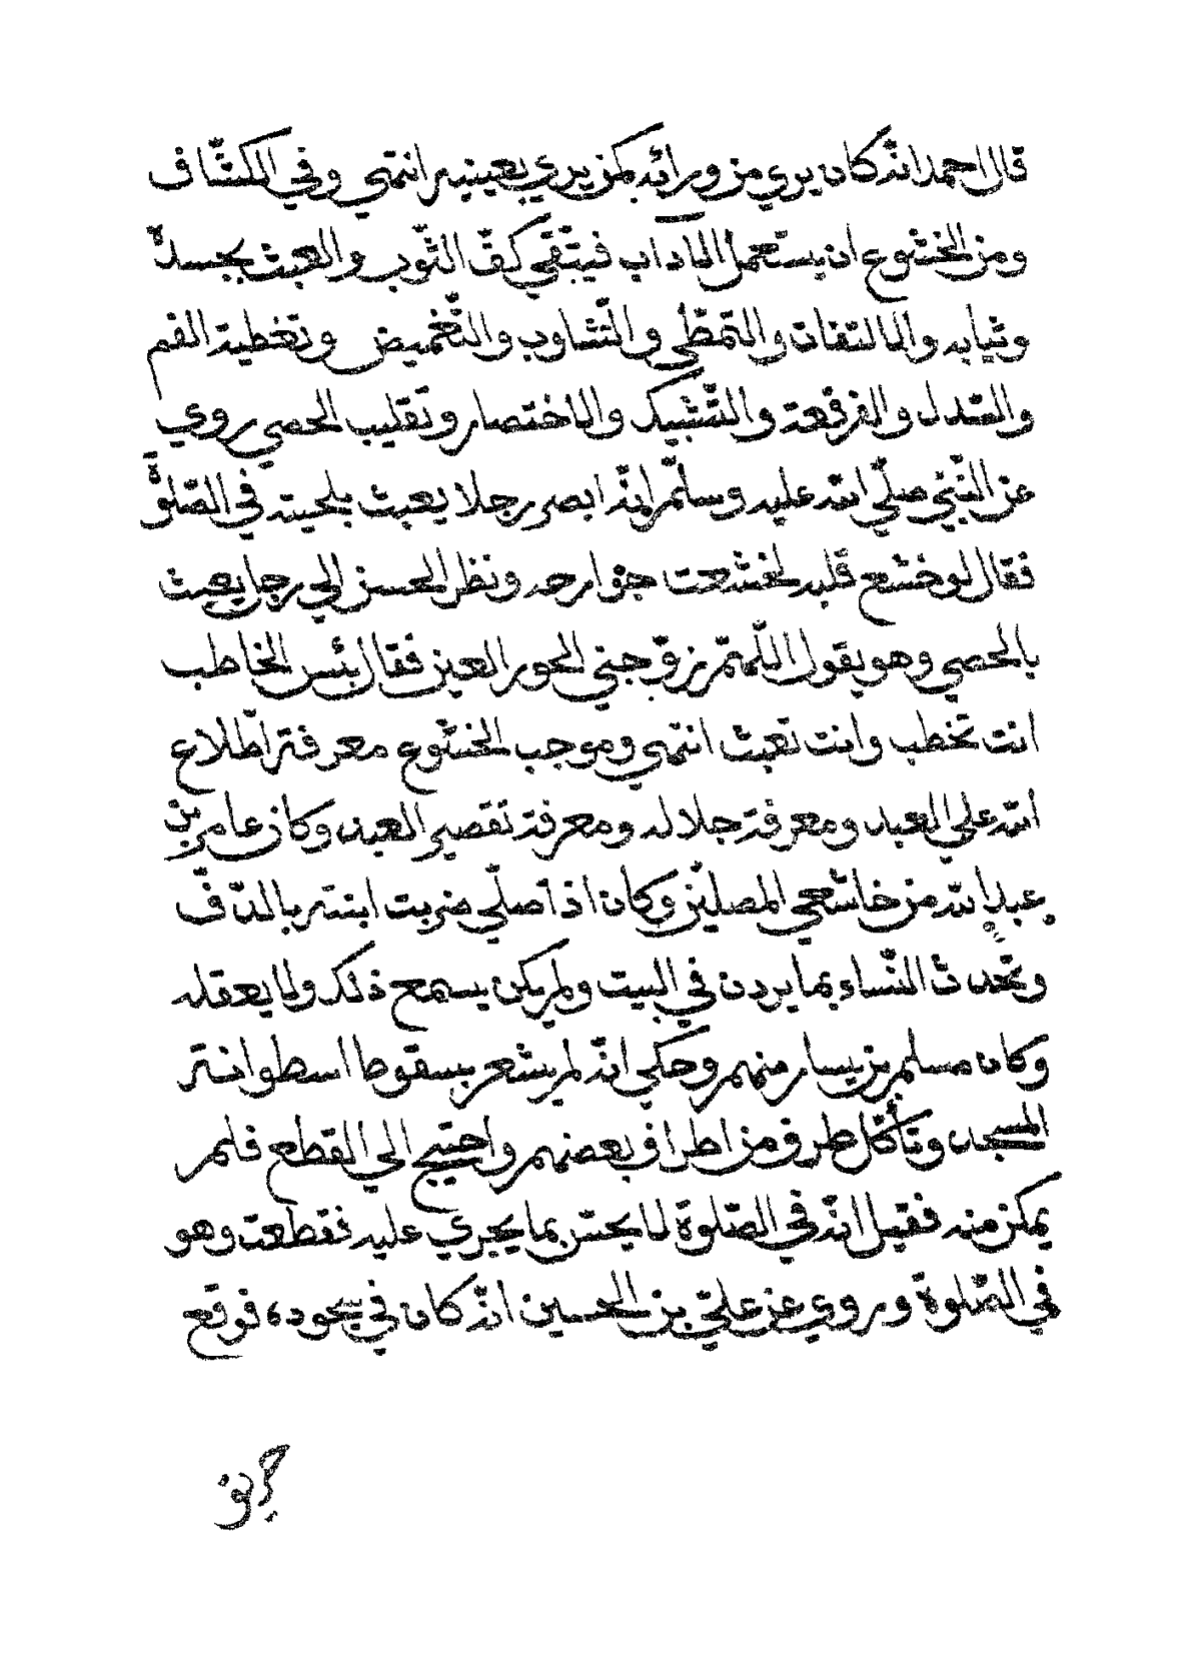 قال احمد انّه كان يري من ورائه كمن يري بعينيه انتهي وفي الكشّاف
ومن الخشوع ان يستعمل الآداب فيتّقي كفّ الثّوب والعبث بجسده
وثيابه والالتفات والتمطّي والتّثاوب والتّغميض وتغطية الفم
والسّدل والفرقعة والتّشبيك والاختصار وتقليب الحصي روي
عن النّبيّ صلّي الله عليه وسلّم انّه ابصر رجلا يعبث بلحيته في الصّلوة
فقال لو خشع قلبه لخشعت جوارحه ونظر الحسن الي رجل يعبث
بالحصي وهو يقول اللّهمّ زوّجني الحور العين فقال بئس الخاطب
انت تخطب وانت تعبث انتهي وموجب الخشوع معرفة اطّلاع
الله علي العبد ومعرفة جلاله ومعرفة تقصير العبد وكان عامر بن
عبد الله من خاشعي المصلّين وكان اذا صلّي ضربت ابنته بالدّفّ
وتحّدث النّساء بما يردن في البيت ولم يكن يسمع ذلك ولا يعقله
وكان مسلم بن يسار منهم وحكي انّه لم يشعر بسقوط اسطوانة
المسجد وتأكّل طرف من اطراف بعضهم واحتيج الي القطع فلم
يمكن منه فقيل انّه في الصّلوة لا يحسّ بما يجري عليه فقطعت وهو
في الصّلوة وروي عن عليّ بن الحسين انّه كان في سجوده فوقع